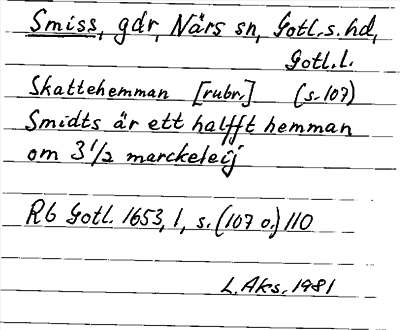 Smiss, gdr, Närs sn, Gotl. s. hd,
Gotl. l.
Skattehemman [rubr.] (s. 107)
Smidts är ett halfft hemman
om 3 1/2 marckeleij
Rb Gotl. 1653, 1, s. (107 o.) 110
L. Aks. 1981